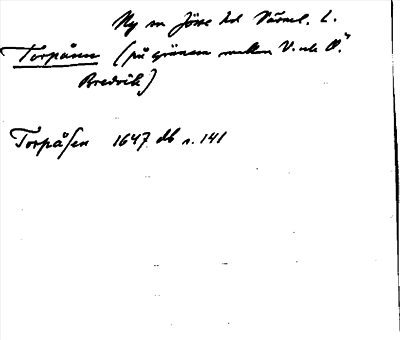 Ny sn Jösse hd Värml. L.
Torpåsen (på gränsen mellan V. och Ö.
Bredvik)
Torpåsen 1647 db s. 141